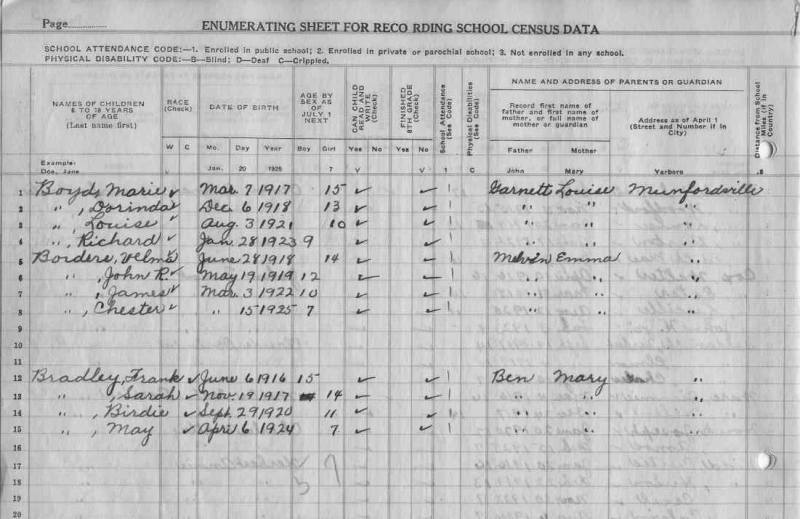 Page
ENUMERATING SHEET FOR RECO RDING SCHOOL CENSUS DATA
SCHOOL ATTENDANCE CODE:—1. Enrolled in public school; 2. Enrolled in private or parochial school; 3. Not enrolled in any school.
PHYSICAL DISABILITY CODE:—B—Blind; D—Deaf C—Crippled.
NAMES OF CHILDREN
6 TO 18 YEARS
OF AGE
(Last name first)
RACE
(Check)
W C
DATE OF BIRTH
Mo. Day Year
AGE BY
SEX AS
OF
JULY 1
NEXT
Boy Girl
CAN CHILD
READ AND
WRITE
(Check)
Yes No
FINISHED
8TH GRADE
(Check)
Yes No
School Attendance
(See Code)
Physical Disabilities
(See Code)
NAME AND ADDRESS OF PARENTS OR GUARDIAN
Record first name of
father and first name of
mother, or full name of
mother or guardian
Father Mother
Address as of April 1
(Street and Number if in
City)
Distance from School
Miles (if in
Country)
Example:
Doe, Jane Jan. 20 1925 7 V V 1 C John Mary Yarboro .8
1 Boyd, Marie ✓ Mar. 7 1917 15 ✓ ✓ 1 Garnett Louise Munfordsville
2 " , Dorinda ✓ Dec 6 1918 13 ✓ ✓ 1 " " "
3 " , Louise ✓ Aug. 3 1921 10 ✓ ✓ 1 " " "
4 " , Richard ✓ Jan. 28 1923 9 ✓ ✓ 1 " " "
5 Borders, Velma ✓ June 28 1918 14 ✓ ✓ 1 Melvin Emma "
6 " , John R. ✓ May 19 1919 12 ✓ ✓ 1 " " "
7 " , James ✓ Mar. 3 1922 10 ✓ ✓ 1 " " "
8 " , Chester ✓ " 15 1925 7 ✓ ✓ 1 " " "
9
10
11
12 Bradley, Frank ✓ June 6 1916 15 ✓ ✓ 1 Ben Mary "
13 " , Sarah ✓ Nov. 19 1917 14 ✓ ✓ 1 " " "
14 " , Birdie ✓ Sept. 29 1920 11 ✓ ✓ 1 " " "
15 " , May ✓ April 6 1924 7 ✓ ✓ 1 " " "
16
17
18
19
20